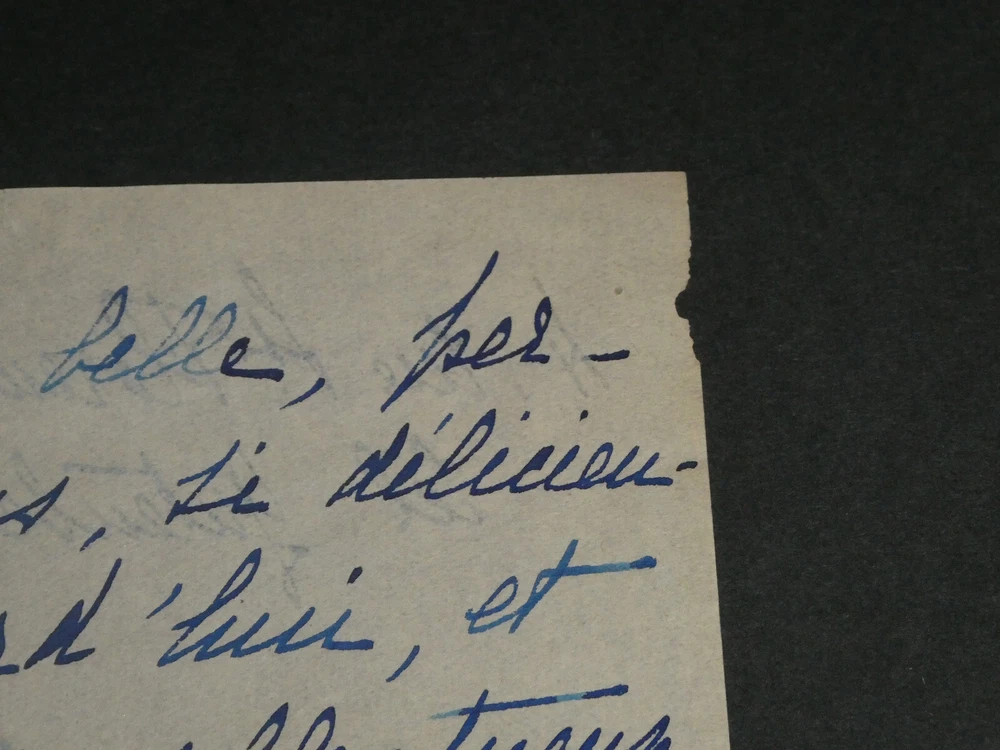 belle, per-
s, si délicieu-
rd'hui, et